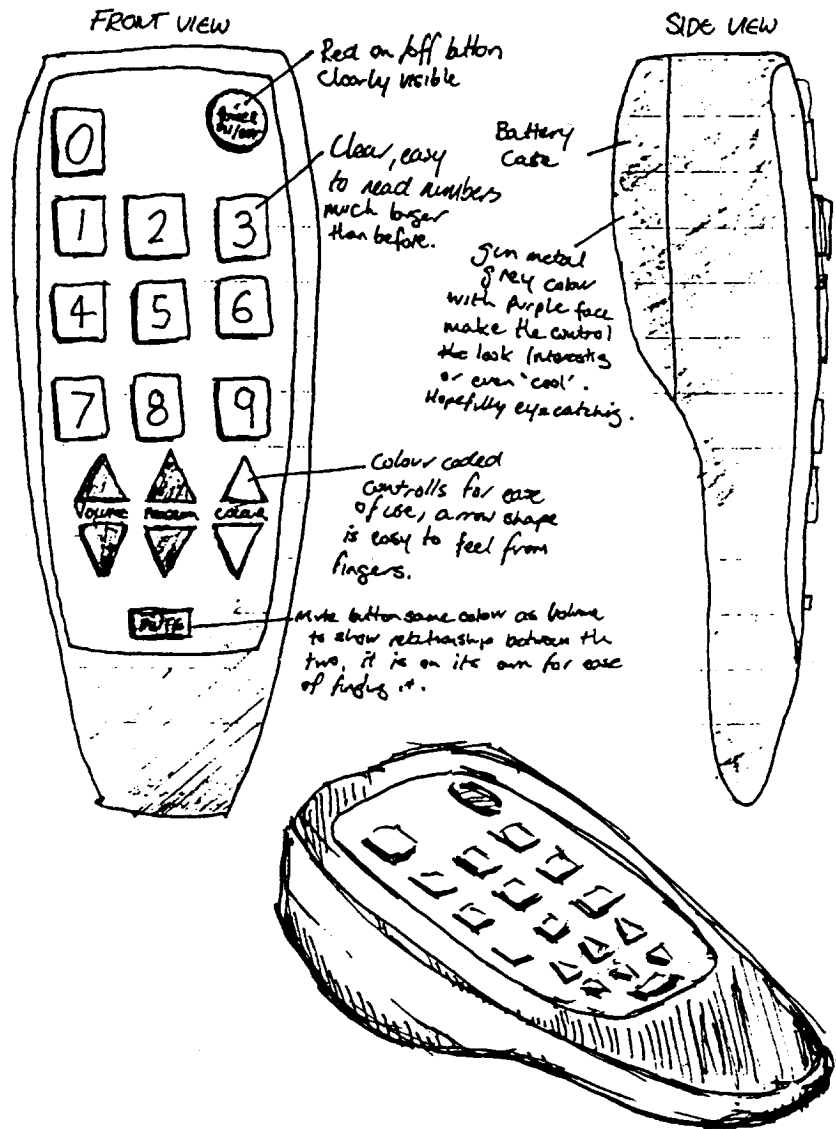 FRONT VIEW
SIDE VIEW
Red on/off button
Clearly visible
POWER
ON/OFF
0
Clear, easy
to read numbers
much larger
than before.
1 2 3
4 5 6
7 8 9
Battery
Case
gun metal
grey colour
with purple face
make the control
the look interesting
or even 'cool'.
Hopefully eyecatching.
Colour coded
controlls for ease
of use, arrow shape
is easy to feel from
fingers.
VOLUME PROGRAM COLOUR
MUTE
Mute button same colour as volume
to show relationship between the
two, it is on its own for ease
of finding it.